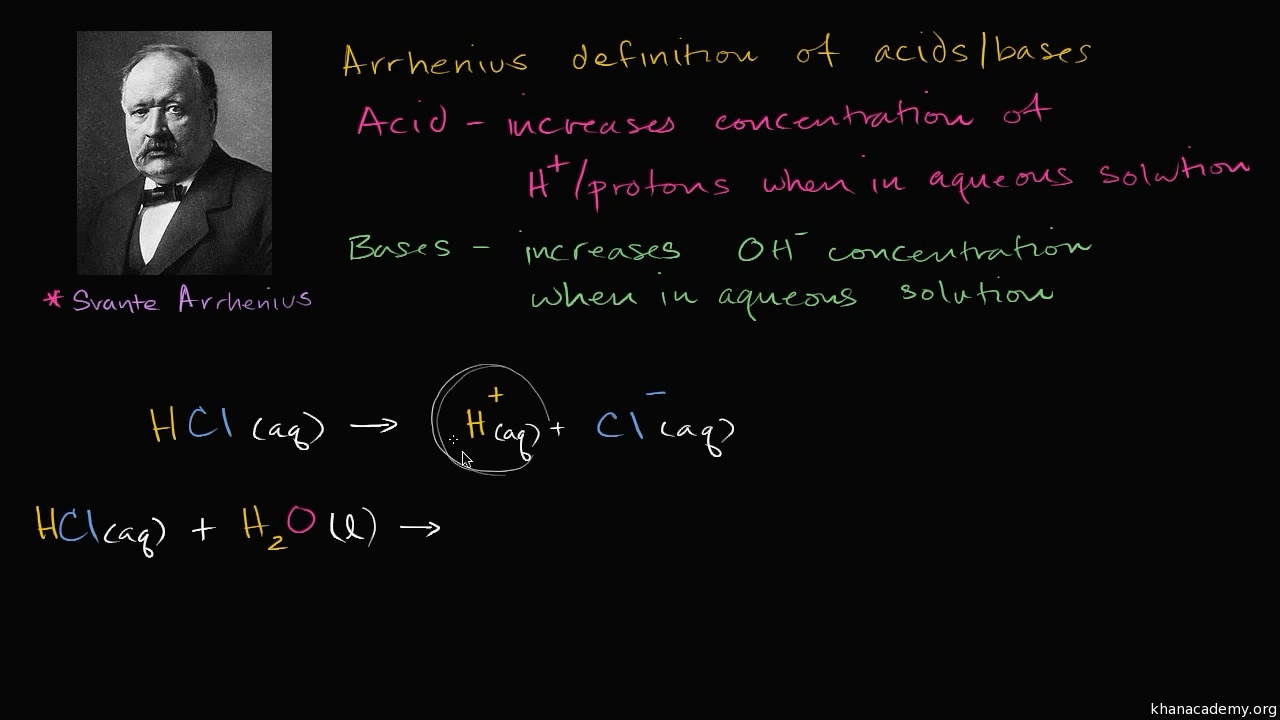 Arrhenius definition of acids/bases
Acid - increases concentration of
H⁺/protons when in aqueous solution
Bases - increases OH⁻ concentration
when in aqueous solution
* Svante Arrhenius
HCl (aq) → H⁺(aq) + Cl⁻(aq)
HCl(aq) + H₂O (l) →
khanacademy.org